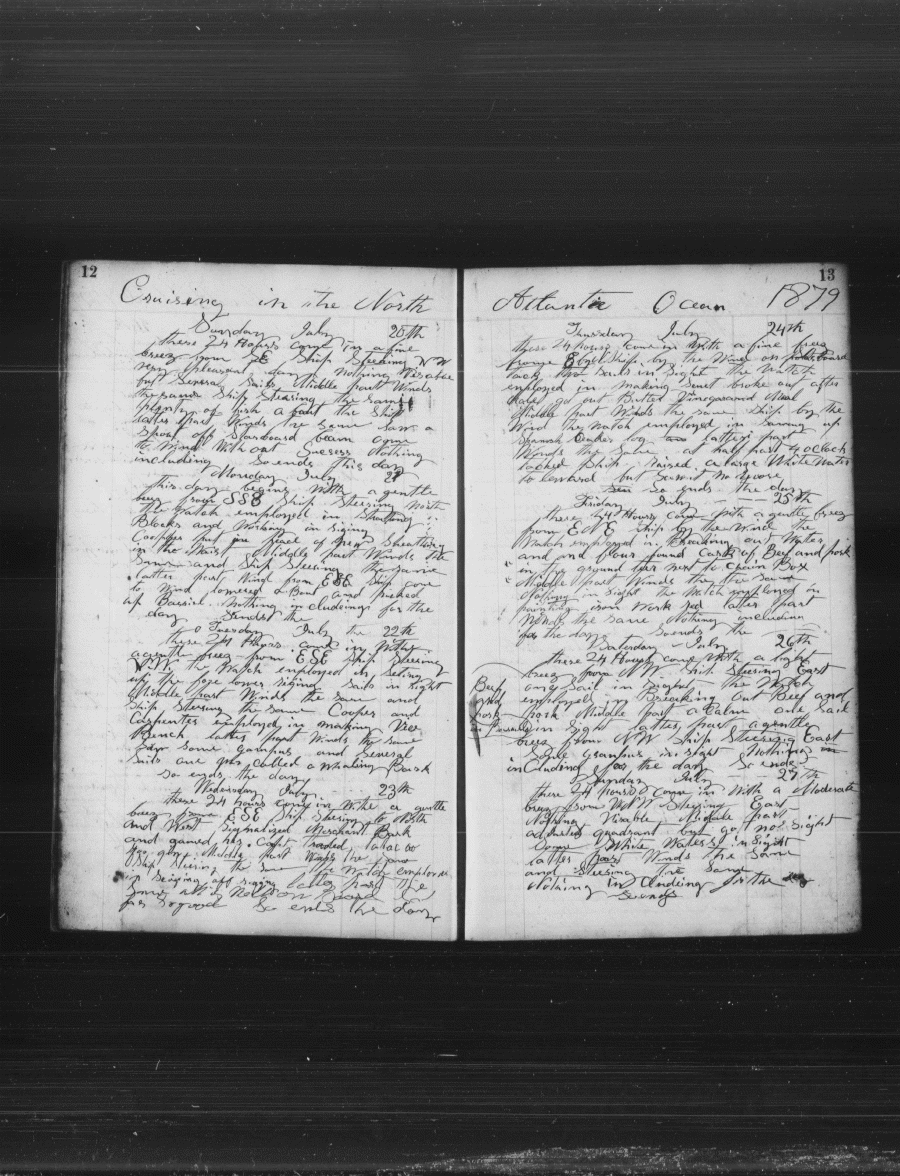 12
Cruising in the North
Sunday July 20th
these 24 Hours Come in a fine
breez from SE Ship Steering NW
very pleasant day nothing Visable
but Several Sails Middle part Winds
the same Ship Steering the same
plenty of fish a bout the Ship
latter part Winds the same saw a
Spout off Starboard beam came
to Wind With out Sucsess Nothing
includeing So ends this day
Monday July 21
this day begins With a gentle
breez from SSE Ship Steering North
the Watch employed in
Blocks and Working in riging
Cooper put on peace of new Sheathing
in the Waist Middle part Winds the
Same and Ship Steering the same
latter part Wind from ESE Ship came
to Wind lowered a Boat and picked
up Barriel Nothing includeings for the
day So ends the
Tuesday July the 22th
these 24 Hours come in with
a gentle breez from ESE Ship Steering
N.W. the Watch employed in Seting
up the fore lower riging Sails in Sight
Middle part Winds the same and
Ship Steering the same Cooper and
Carpenter employed in making Vice
Bench latter part Winds the same
Saw some gampus and Several
Sails one was called a Whaling Bark
So ends the day
Wednesday July 23th
these 24 hours come in With a gentle
breez from ESE Ship Steering to North
and West Signalized Merchant Bark
and gamed her Capt traded tobacco
for Middle part Winds the same
Ship Steering the same the Watch employed
in latter part the
Same
for So ends the Day
13
Atlantic Ocean 1879
Thursday July 24th
these 24 hours come in With a fine breez
frome E by N Ship by the Wind on
tack two Sails in Sight the Watch
employed in making Senet broke out after
got out Butter Vinegar and Meal
Middle part Winds the same Ship by the
Wind the Watch employed in Sawing up
Spanish Ceder log latter part
Winds the Same at half past 4 oclock
tacked Ship Raised a large White Water
to leward but Saw it no more
So ends the day
Friday July 25th
these 24 Hours Come with a gentle breez
from ENE Ship by the Wind the
Watch employed in Breaking out Water
and and four found Cask of Beef and pork
in the ground tier next to Chain Box
Middle part Winds the the same
Nothing in Sight the Watch employed in
painting iron Work red latter part
Winds the same Nothing includeing
for the day So ends the
Saturday July 26th
these 24 Hours come With a light
breez from NW Ship Steering East
one Sail in Sight the Watch
employed in Breaking out Beef and
pork Middle part a Calm one Sail
in Sight latter part a gently
breez from NW Ship Steering East
Some Grampus in sight Nothing in
includeing for the day So ends
Beef
and
pork
Sunday July 27th
these 24 hours come in With a Moderate
breez from WNW Steering East
Nothing Visable Middle part
adjusted quadrant but got no Sight
Some White Waters in Sight
latter part Winds the Same
and Steering the Same
Nothing in Cludeing for the day
So ends